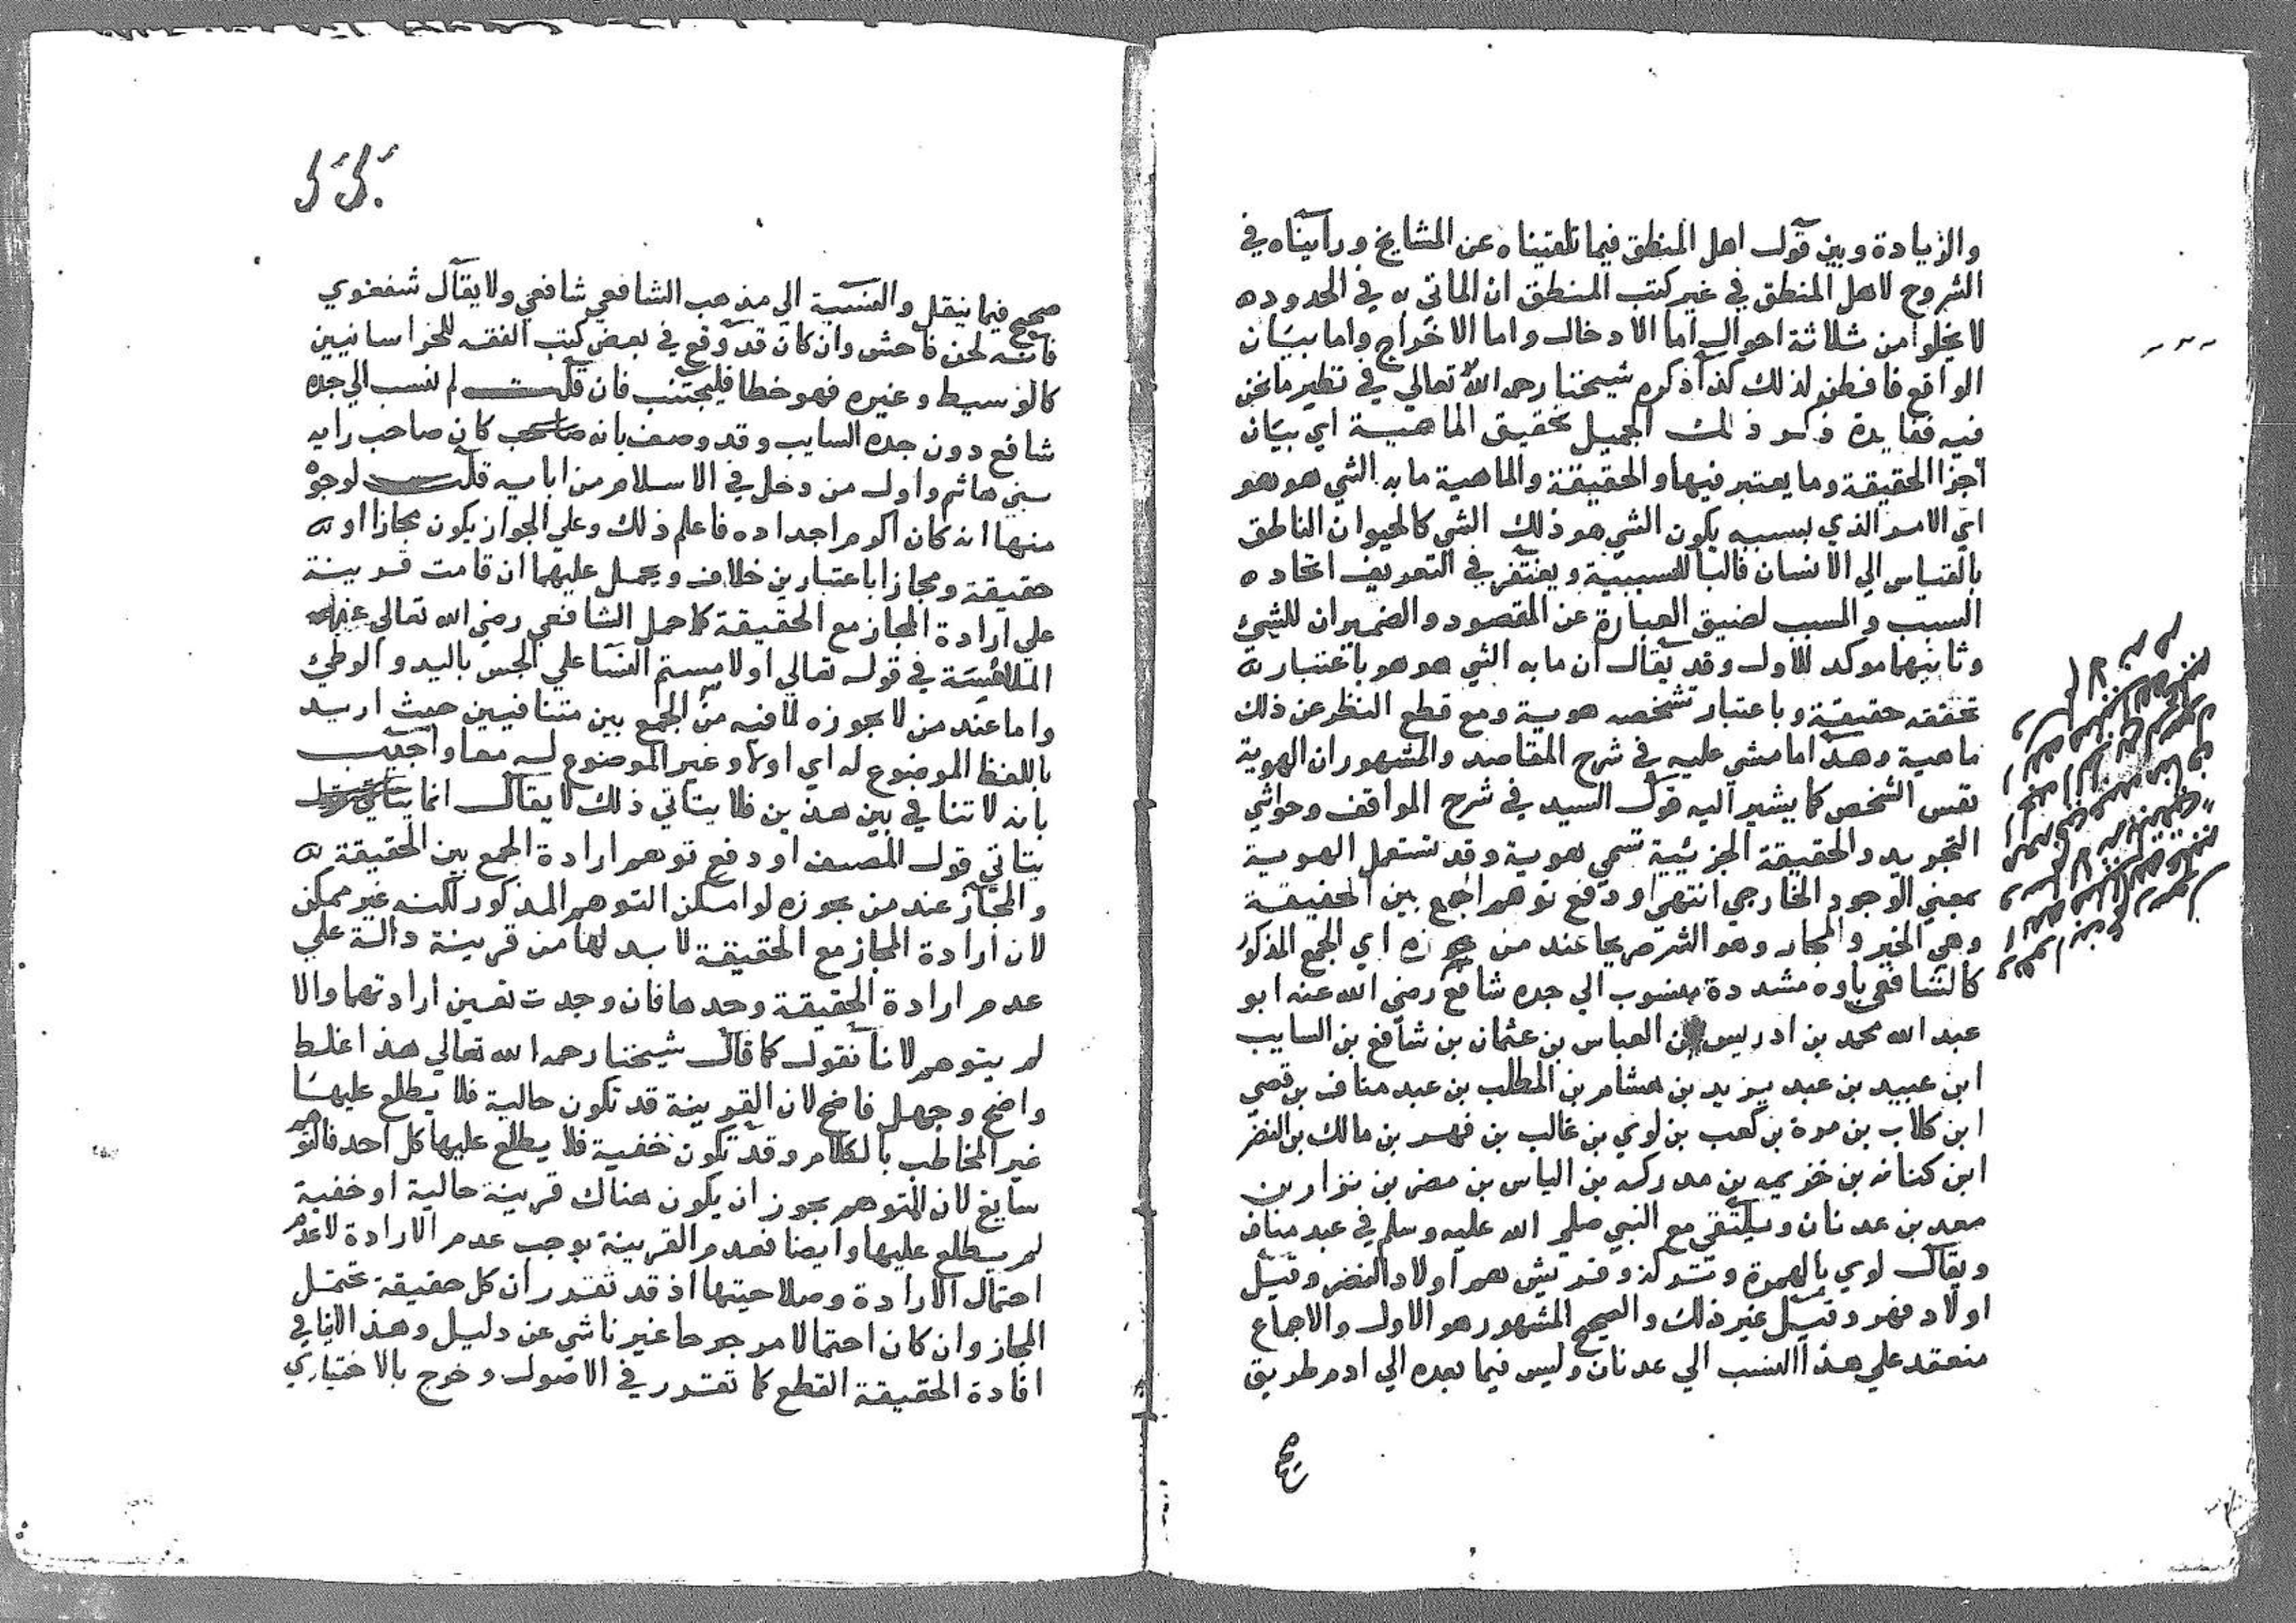 والزيادة وبين قول اهل المنطق فيما تلقيناه عن المشايخ ورأيناه في
الشروح لاهل المنطق في غير كتب المنطق ان الماتي به في الحدود ه
لا يخلوا من ثلاثة احوال اما الادخال واما الاخراج واما بيان
الواقع فافطن لذلك كذا ذكره شيخنا رحمه الله تعالي في نظير ما نحن
فيه ففايدة ذكر ذلك الجميل تحقيق الماهية اي بيان
اجزا الحقيقة وما يعتبر فيها والحقيقة والماهية ما به الشي هو هو
اي الامر الذي بسببه يكون الشي هو ذلك الشي كالحيوان الناطق
بالقياس الي الانسان فالبا للسببية ويغتفر في التعريف اتحاد ه
السبب والمسبب لضيق العبارة عن المقصود والضميران للشئ
وثانيهما موكد للاول وقد يقال ان ما به الشي هو هو باعتبار
تحققه حقيقة وباعتبار تشخصه هوية ومع قطع النظر عن ذلك
ماهية وهذا ما مشي عليه في شرح المقاصد والمشهور ان الهوية
نفس الشخص كما يشير اليه قول السيد في شرح المواقف وحواشي
التجريد والحقيقة الجزئية تسمي هوية وقد تستعمل الهوية
بمعني الوجود الخارجي انتهي او دفع توهم الجمع بين الحقيقة
وهي الخير والمجاز وهو الشر مجازا عند من يجوزه اي الجمع المذكور
كالشافعي ياوه مشددة منسوب الي جده شافع رضي الله عنه ابو
عبد الله محمد بن ادريس بن العباس بن عثمان بن شافع بن السايب
ابن عبيد بن عبد يزيد بن هشام بن المطلب بن عبد مناف بن قصي
ابن كلاب بن مرة بن كعب بن لوي بن غالب بن فهر بن مالك بن النضر
ابن كنانه بن خزيمه بن مدركه بن الياس بن مضر بن نزار بن
معد بن عدنان ويلتقي مع النبي صلي الله عليه وسلم في عبد مناف
ويقال لوي بالهمزة وتتركز وقريش هم اولاد النضر وقيل
اولاد فهر وقيل غير ذلك والصحيح المشهور هو الاول والاجماع
منعقد علي هذا النسب الي عدنان وليس فيما بعده الي ادم طريق
صحيح فيما ينقل والنسبة الي مذهب الشافعي شافعي ولا يقال شفعوي
فانه لحن فاحش وان كان قد وقع في بعض كتب الفقه للخراسانيين
كالوسيط وغيره فهو خطا فليجتنب فان قلت لم نسب الي جده
شافع دون جده السايب وقد وصف بانه كان صاحب رايه
بني هاشم واول من دخل في الاسلام من ابايه قلت لوجوه
منها انه كان اكرم اجداده فاعلم ذلك وعلي الجواز يكون مجازا او
حقيقة ومجازا باعتبارين خلاف ويحمل عليهما ان قامت قرينة
علي ارادة المجاز مع الحقيقة كما حمل الشافعي رضي الله تعالي عنه
الملامسة في قوله تعالي او لامستم النسا علي الجس باليد والوطئ
واما عند من لا يجوزه لما فيه من الجمع بين متنافيين حيث اريد
باللفظ الموضوع له اي اولا وغير الموضوع له معا واجيب
بانه لا تنافي بين هذين فلا يتاتي ذلك لا يقال انما
يتاتي قول المصنف او دفع توهم ارادة الجمع بين الحقيقة
والمجاز عند من يجوزه لو امكن التوهم المذكور لكنه غير ممكن
لان ارادة المجاز مع الحقيقة لا بد لها من قرينة دالة علي
عدم ارادة الحقيقة وحدها فان وجدت تعين ارادتهما والا
لم يتوهم لانا نقول كما قال شيخنا رحمه الله تعالي هذا غلط
واضح وجهل فاضح لان القرينة قد تكون حالية فلا يطلع عليها
غير المخاطب بالكلام وقد تكون خفية فلا يطلع عليها كل احد فالتوهم
سايغ لان المتوهم يجوز ان يكون هناك قرينة حالية او خفية
لم يطلع عليها وايضا فعدم القرينة يوجب عدم الارادة لا عدم
احتمال الارادة وصلاحيتها اذ قد تقرر ان كل حقيقة تحتمل
المجاز وان كان احتمالا مرجوحا غير ناشي عن دليل وهذا لا ينافي
افادة الحقيقة القطع كما تقرر في الاصول وخرج بالاختياري